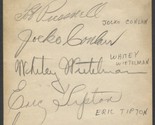 Russell
JOCKO CONLON
Jocko Conlan
WHITEY
WIETELMAN
Whitey Wietelmann
Eric Tipton
ERIC TIPTON